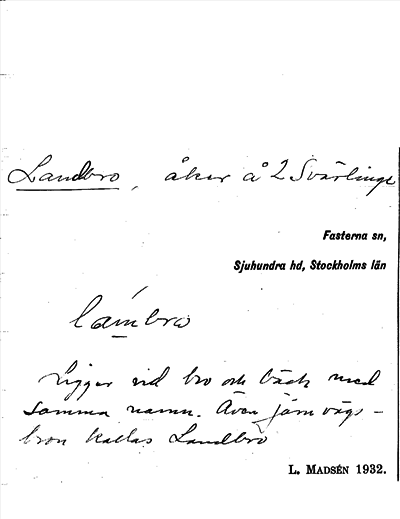 Landbro, åker å 2 Svärlinge
Fasterna sn,
Sjuhundra hd, Stockholms län
lám̲bro
Ligger vid bro och bäck med
samma namn. Även järnvägs-
bron kallas Landbro
L. MADSÉN 1932.